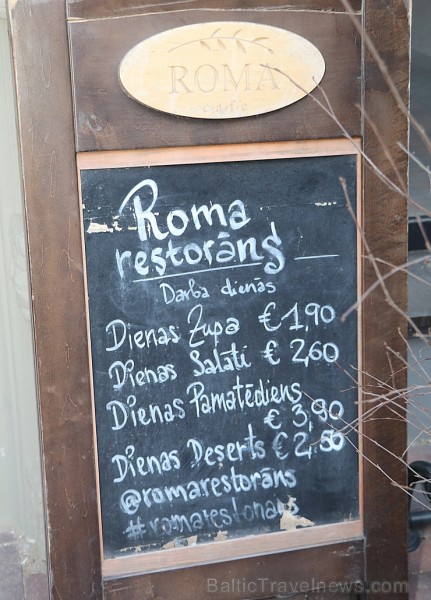 ROMA
caffe
Roma
restorāns
Darba dienās
Dienas Zupa € 1,90
Dienas Salāti € 2,60
Dienas Pamatēdiens
€ 3,90
Dienas Deserts €
@romarestorāns
#romarestorans
BalticTravelnews.com